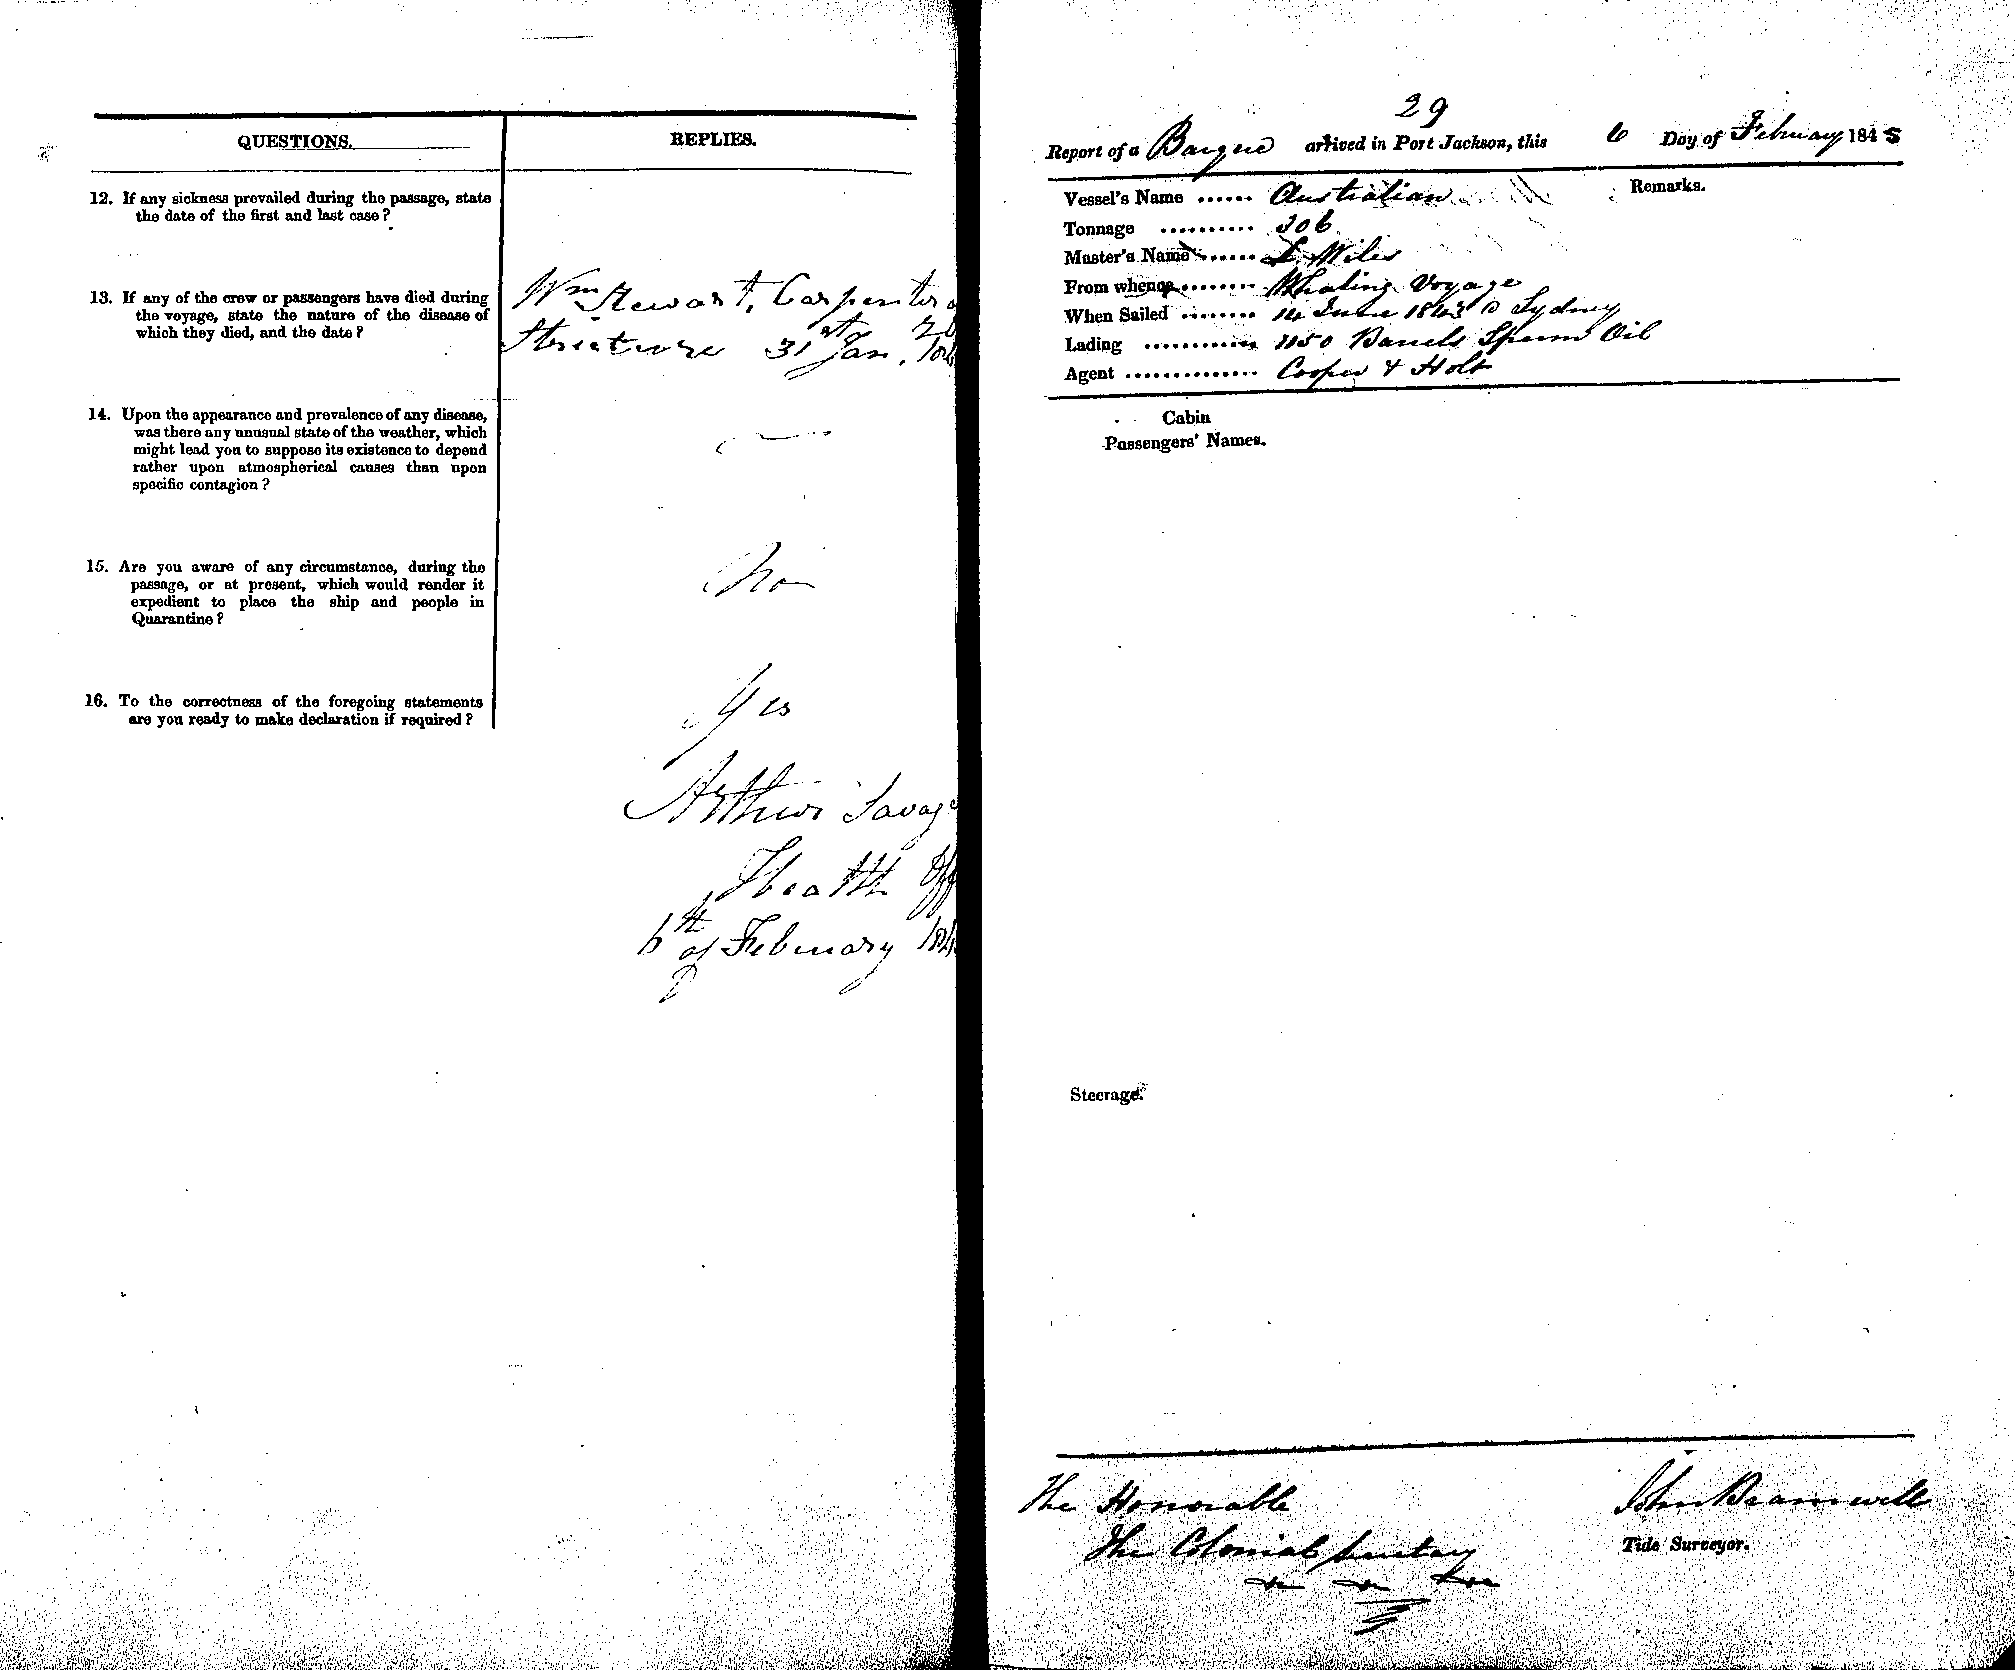 QUESTIONS.
REPLIES.
12. If any sickness prevailed during the passage, state
the date of the first and last case?
13. If any of the crew or passengers have died during
the voyage, state the nature of the disease of
which they died, and the date?
Wm Stewart, Carpenter
Stricture 31st Jan.
14. Upon the appearance and prevalence of any disease,
was there any unusual state of the weather, which
might lead you to suppose its existence to depend
rather upon atmospherical causes than upon
specific contagion?
15. Are you aware of any circumstance, during the
passage, or at present, which would render it
expedient to place the ship and people in
Quarantine?
No
16. To the correctness of the foregoing statements
are you ready to make declaration if required?
Yes
Arthur Savage
Health Off
6th of February 184
29
Report of a Barque arrived in Port Jackson, this 6 Day of February 1845
Vessel's Name ...... Australian
Remarks.
Tonnage .......... 306
Master's Name ...... Miles
From whence ........ Whaling Voyage
When Sailed ........ 14 June 1843 @ Sydney
Lading ............ 1150 Barrels Sperm Oil
Agent .............. Cooper & Holt
Cabin
Passengers' Names.
Steerage.
The Honorable
The Colonial Secretary
John Bramwell
Tide Surveyor.